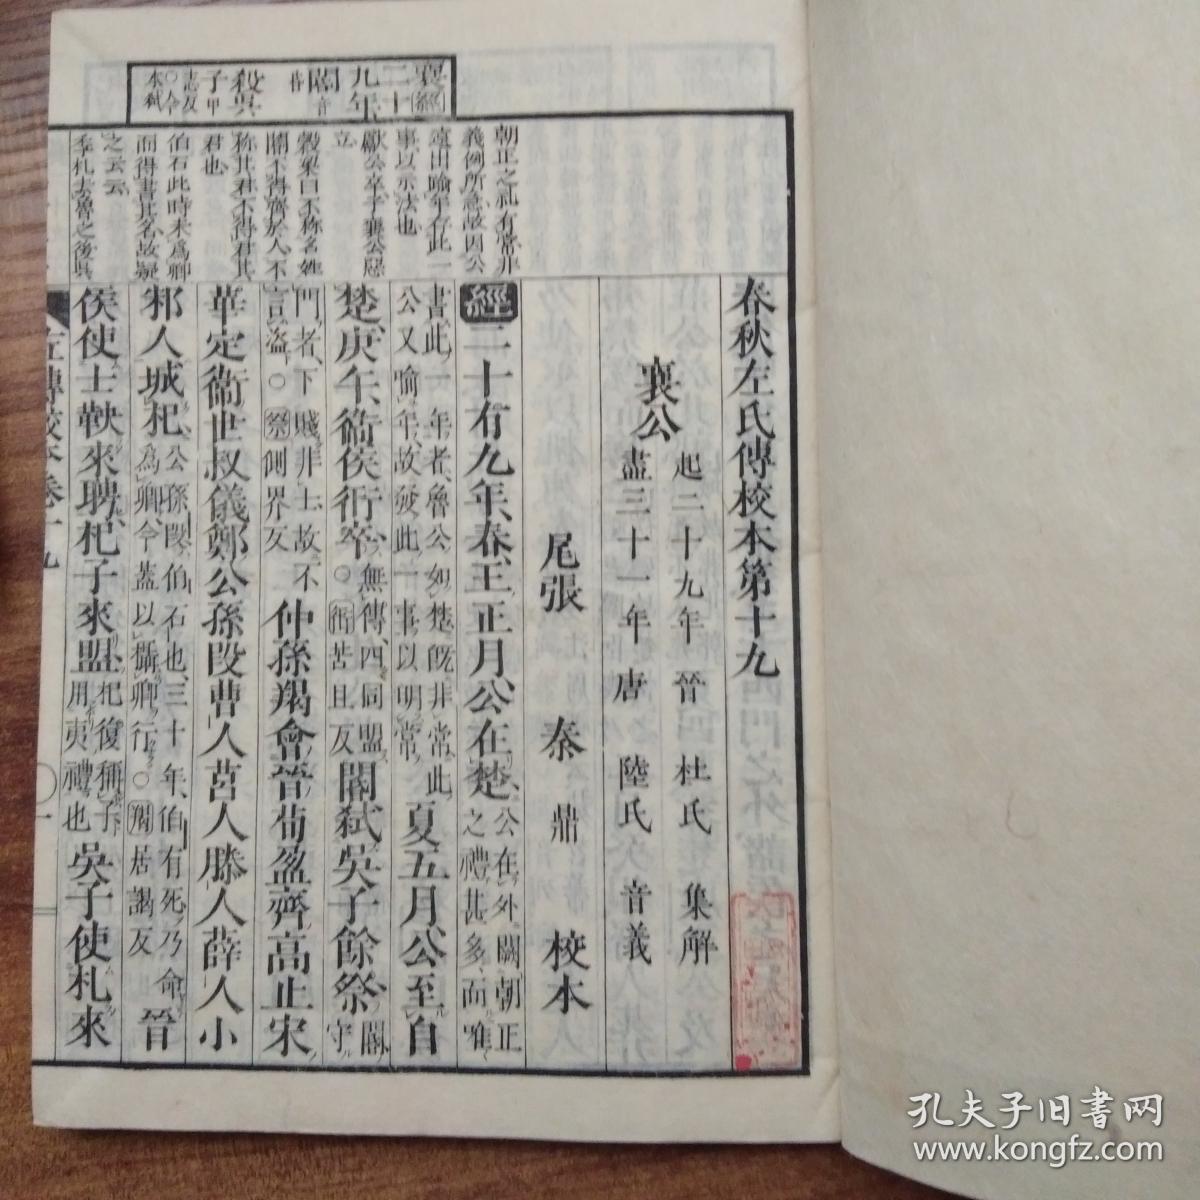 春秋左氏傳校本第十九
襄公
起二十九年晉 杜氏 集解
盡三十一年唐 陸氏 音義
尾張 秦 鼎 校本
經二十有九年春王正月公在楚公在外闕朝正之禮甚多而唯
書此一年者魯公如楚既非常此公又踰年故發此一事以明常夏五月公至自
楚庚午衞侯衎卒無傳四同盟○衎苦旦反閽弑吳子餘祭閽守
門者下賤非士故不言盜○祭側界反仲孫羯會晉荀盈齊高止宋
華定衞世叔儀鄭公孫段曹人莒人滕人薛人小
邾人城杞公孫段伯石也三十年伯有死乃命爲卿今蓋以攝卿行○羯居謁反晉
侯使士鞅來聘杞子來盟杞復稱子用夷禮也吳子使札來
左傳校本卷十九
一
襄經
二十
九年
閽音昏
殺吳
子
朝正之礼有常非
義例所急故因公
遠出踰年存此一
事以示法也
獻公卒子襄公惡
立
穀梁曰不称名姓
閽不得齊於人不
称其君不得君其
君也
伯石此時未爲卿
而得書其名故疑
之云云
季札去魯之後吳
孔夫子旧書网
www.kongfz.com